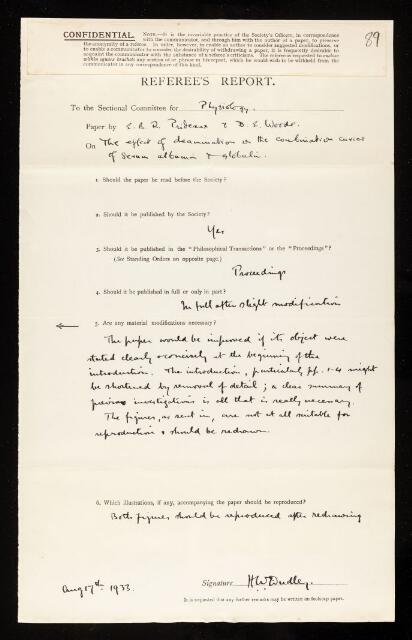 CONFIDENTIAL.
NOTE.—It is the invariable practice of the Society's Officers, in correspondence
with the communicator, and through him with the author of a paper, to preserve
the anonymity of a referee. In order, however, to enable an author to consider suggested modifications, or
to enable a communicator to consider the desirability of withdrawing a paper, it is frequently desirable to
acquaint the communicator with the substance of a referee's criticisms. The referee is requested to enclose
within square brackets any section of or phrase in his report, which he would wish to be withheld from the
communicator in any correspondence of this kind.
89
REFEREE'S REPORT.
To the Sectional Committee for Physiology.
Paper by E. B. R. Prideaux & D. E. Woods.
On The effect of deamination on the combination curves
of serum albumin & globulin.
1. Should the paper be read before the Society?
2. Should it be published by the Society?
Yes
3. Should it be published in the "Philosophical Transactions" or the "Proceedings"?
(See Standing Orders on opposite page.)
Proceedings
4. Should it be published in full or only in part?
In full after slight modification
5. Are any material modifications necessary?
The paper would be improved if its object were
stated clearly & concisely at the beginning of the
introduction. The introduction, particularly pp. 1-4 might
be shortened by removal of detail; a clear summary of
previous investigations is all that is really necessary.
The figures, as sent in, are not at all suitable for
reproduction & should be redrawn.
6. Which illustrations, if any, accompanying the paper should be reproduced?
Both figures should be reproduced after redrawing
Aug 17th. 1933.
Signature H. W. Dudley.
It is requested that any further remarks may be written on foolscap paper.